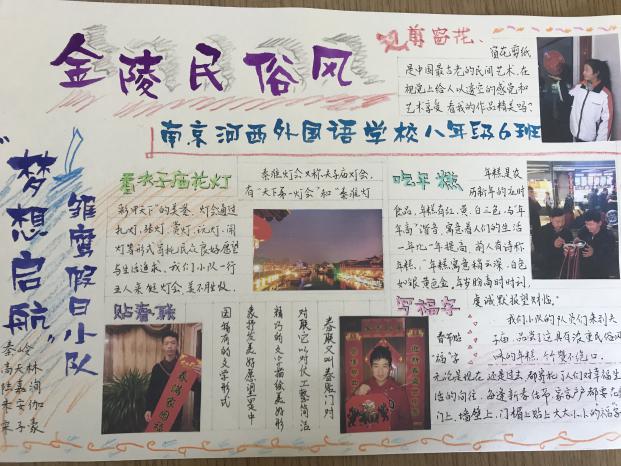 金陵民俗风
剪窗花
窗花剪纸
是中国最古老的民间艺术,在
视觉上给人以透空的感觉和
艺术享受,看我的作品精美吗?
南京河西外国语学校八年级6班
"梦想启航"
雏鹰假日小队
秦岭
高天林
宋子豪
看夫子庙花灯
秦淮灯会又称夫子庙灯会,
有"天下第一灯会"和"秦淮灯
彩甲天下"的美誉,灯会通过
扎灯、张灯、赏灯、玩灯、闹
灯等形式寄托民众良好愿望
与生活追求。我们小队一行
五人来逛灯会,美不胜收。
吃年糕
年糕是农
历新年的应时
食品,年糕有红、黄、白三色,与"年
年高"谐音,寓意着人们的生活
一年比一年提高。前人有诗称
年糕:"年糕寓意稍云深,白色
如银黄色金,年岁盼高时时利,
虔诚默祝望财临。"
我们小队的队员们来到夫
贴春联
春联又叫春贴、门对
对联,它以对仗工整、简洁
精巧的文字描绘美好形
象,抒发美好愿望,是中
国特有的文学形式
写福字
春节贴
"福"字
无论是现在还是过去,都寄托了人们对幸福生
活的向往,每逢新春佳节,家家户户都要在
门上、墙壁上、门楣上贴上大大小小的福字